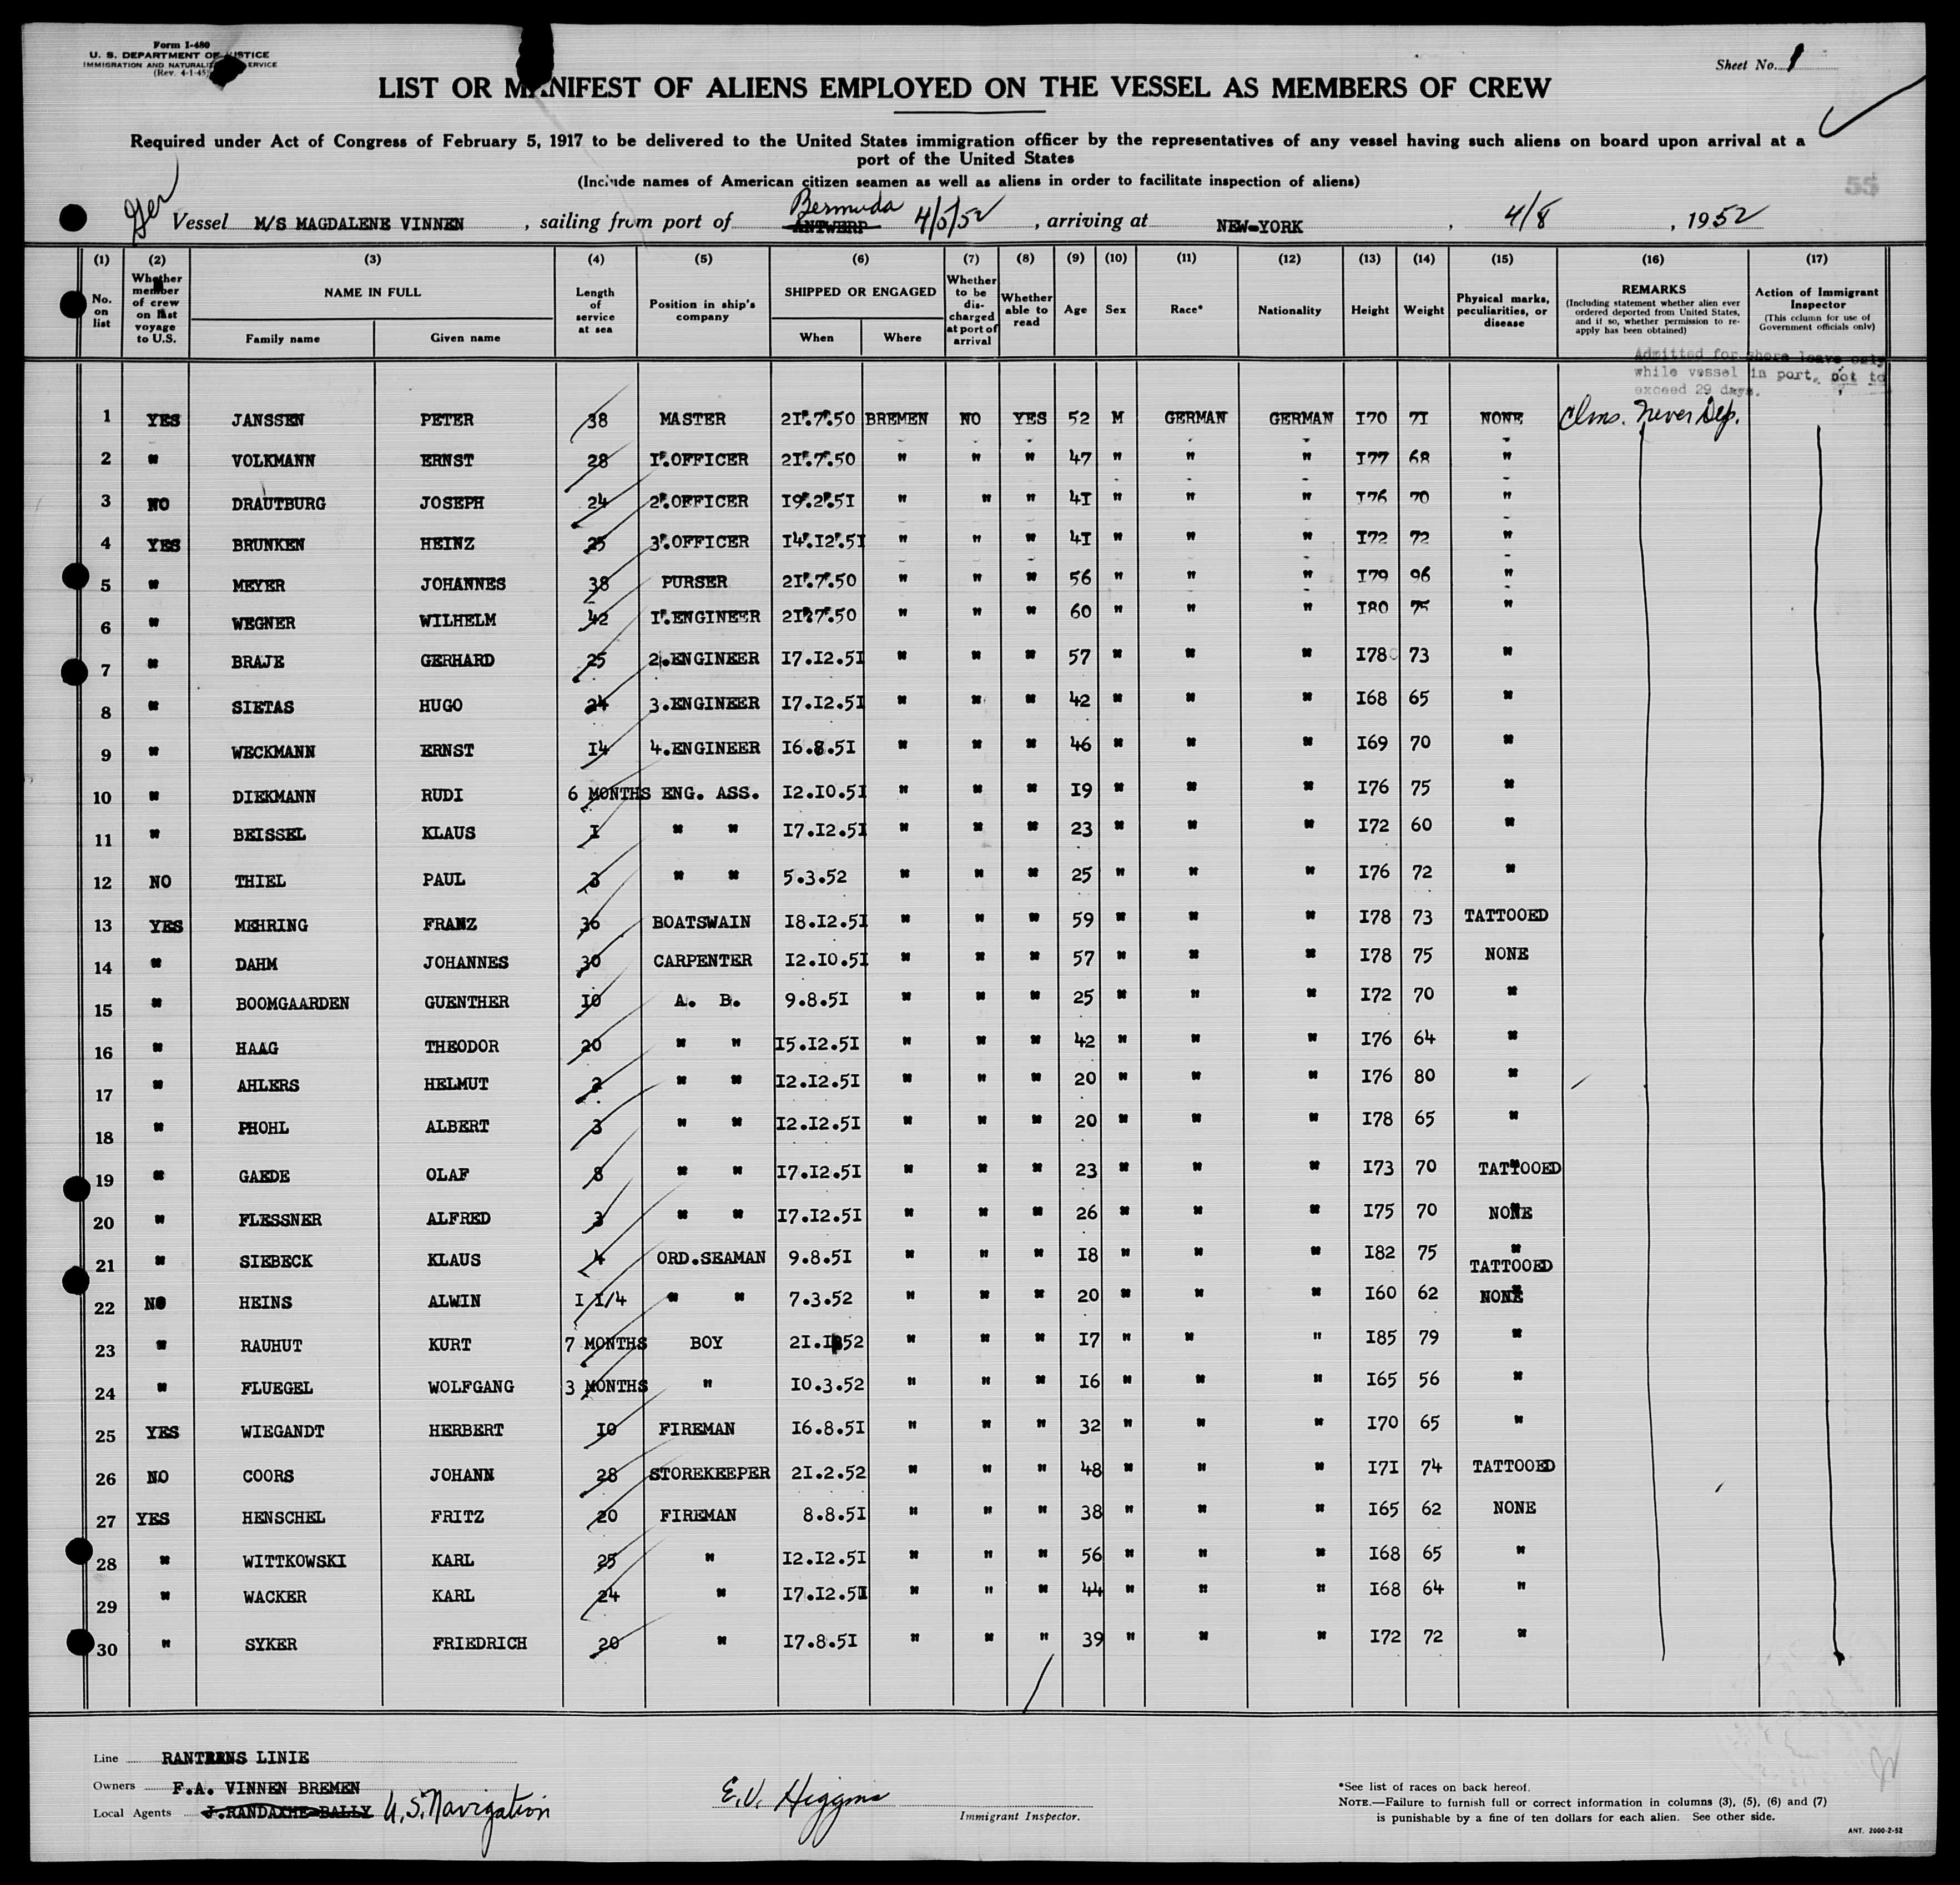 Form I-480
U. S. DEPARTMENT OF JUSTICE
IMMIGRATION AND NATURALIZATION SERVICE
(Rev. 4-1-45)
Sheet No. 1
LIST OR MANIFEST OF ALIENS EMPLOYED ON THE VESSEL AS MEMBERS OF CREW
Required under Act of Congress of February 5, 1917 to be delivered to the United States immigration officer by the representatives of any vessel having such aliens on board upon arrival at a
port of the United States
(Include names of American citizen seamen as well as aliens in order to facilitate inspection of aliens)
55
Ger
Bermuda
Vessel M/S MAGDALENE VINNEN , sailing from port of ANTWERP 4/5/52 , arriving at NEW-YORK , 4/8 , 1952
(1) (2) (3) (4) (5) (6) (7) (8) (9) (10) (11) (12) (13) (14) (15) (16) (17)
No. on list
Whether member of crew on last voyage to U.S.
NAME IN FULL
Family name
Given name
Length of service at sea
Position in ship's company
SHIPPED OR ENGAGED
When
Where
Whether to be discharged at port of arrival
Whether able to read
Age
Sex
Race*
Nationality
Height
Weight
Physical marks, peculiarities, or disease
REMARKS
(Including statement whether alien ever ordered deported from United States, and if so, whether permission to reapply has been obtained)
Action of Immigrant Inspector
(This column for use of Government officials only)
Admitted for shore leave only
while vessel in port, not to
exceed 29 days.
1 YES JANSSEN PETER 38 MASTER 21.7.50 BREMEN NO YES 52 M GERMAN GERMAN 170 71 NONE Clms. Never Dep.
2 " VOLKMANN ERNST 28 1.OFFICER 21.7.50 " " " 47 " " " 177 68 "
3 NO DRAUTBURG JOSEPH 24 2.OFFICER 19.2.51 " " " 41 " " " 176 70 "
4 YES BRUNKEN HEINZ 25 3.OFFICER 14.12.51 " " " 41 " " " 172 72 "
5 " MEYER JOHANNES 38 PURSER 21.7.50 " " " 56 " " " 179 96 "
6 " WEGNER WILHELM 42 1.ENGINEER 21.7.50 " " " 60 " " " 180 75 "
7 " BRAJE GERHARD 25 2.ENGINEER 17.12.51 " " " 57 " " " 178 73 "
8 " SIETAS HUGO 24 3.ENGINEER 17.12.51 " " " 42 " " " 168 65 "
9 " WECKMANN ERNST 14 4.ENGINEER 16.8.51 " " " 46 " " " 169 70 "
10 " DIEKMANN RUDI 6 MONTHS ENG. ASS. 12.10.51 " " " 19 " " " 176 75 "
11 " BEISSEL KLAUS 1 " " 17.12.51 " " " 23 " " " 172 60 "
12 NO THIEL PAUL 3 " " 5.3.52 " " " 25 " " " 176 72 "
13 YES MEHRING FRANZ 36 BOATSWAIN 18.12.51 " " " 59 " " " 178 73 TATTOOED
14 " DAHM JOHANNES 30 CARPENTER 12.10.51 " " " 57 " " " 178 75 NONE
15 " BOOMGAARDEN GUENTHER 10 A. B. 9.8.51 " " " 25 " " " 172 70 "
16 " HAAG THEODOR 20 " " 15.12.51 " " " 42 " " " 176 64 "
17 " AHLERS HELMUT 2 " " 12.12.51 " " " 20 " " " 176 80 "
18 " PHOHL ALBERT 3 " " 12.12.51 " " " 20 " " " 178 65 "
19 " GAEDE OLAF 8 " " 17.12.51 " " " 23 " " " 173 70 TATTOOED
20 " FLESSNER ALFRED 3 " " 17.12.51 " " " 26 " " " 175 70 NONE
21 " SIEBECK KLAUS 4 ORD.SEAMAN 9.8.51 " " " 18 " " " 182 75 " TATTOOED
22 NO HEINS ALWIN 1 1/4 " " 7.3.52 " " " 20 " " " 160 62 NONE
23 " RAUHUT KURT 7 MONTHS BOY 21.1.52 " " " 17 " " " 185 79 "
24 " FLUEGEL WOLFGANG 3 MONTHS " 10.3.52 " " " 16 " " " 165 56 "
25 YES WIEGANDT HERBERT 10 FIREMAN 16.8.51 " " " 32 " " " 170 65 "
26 NO COORS JOHANN 28 STOREKEEPER 21.2.52 " " " 48 " " " 171 74 TATTOOED
27 YES HENSCHEL FRITZ 20 FIREMAN 8.8.51 " " " 38 " " " 165 62 NONE
28 " WITTKOWSKI KARL 25 " 12.12.51 " " " 56 " " " 168 65 "
29 " WACKER KARL 24 " 17.12.51 " " " 44 " " " 168 64 "
30 " SYKER FRIEDRICH 20 " 17.8.51 " " " 39 " " " 172 72 "
Line LINIE
Owners F.A. VINNEN BREMEN
Local Agents J.RANDAXHE-BALLY U.S. Navigation
E.V. Higgins
Immigrant Inspector.
*See list of races on back hereof.
NOTE.—Failure to furnish full or correct information in columns (3), (5), (6) and (7)
is punishable by a fine of ten dollars for each alien. See other side.
ANT. 2000-2-52